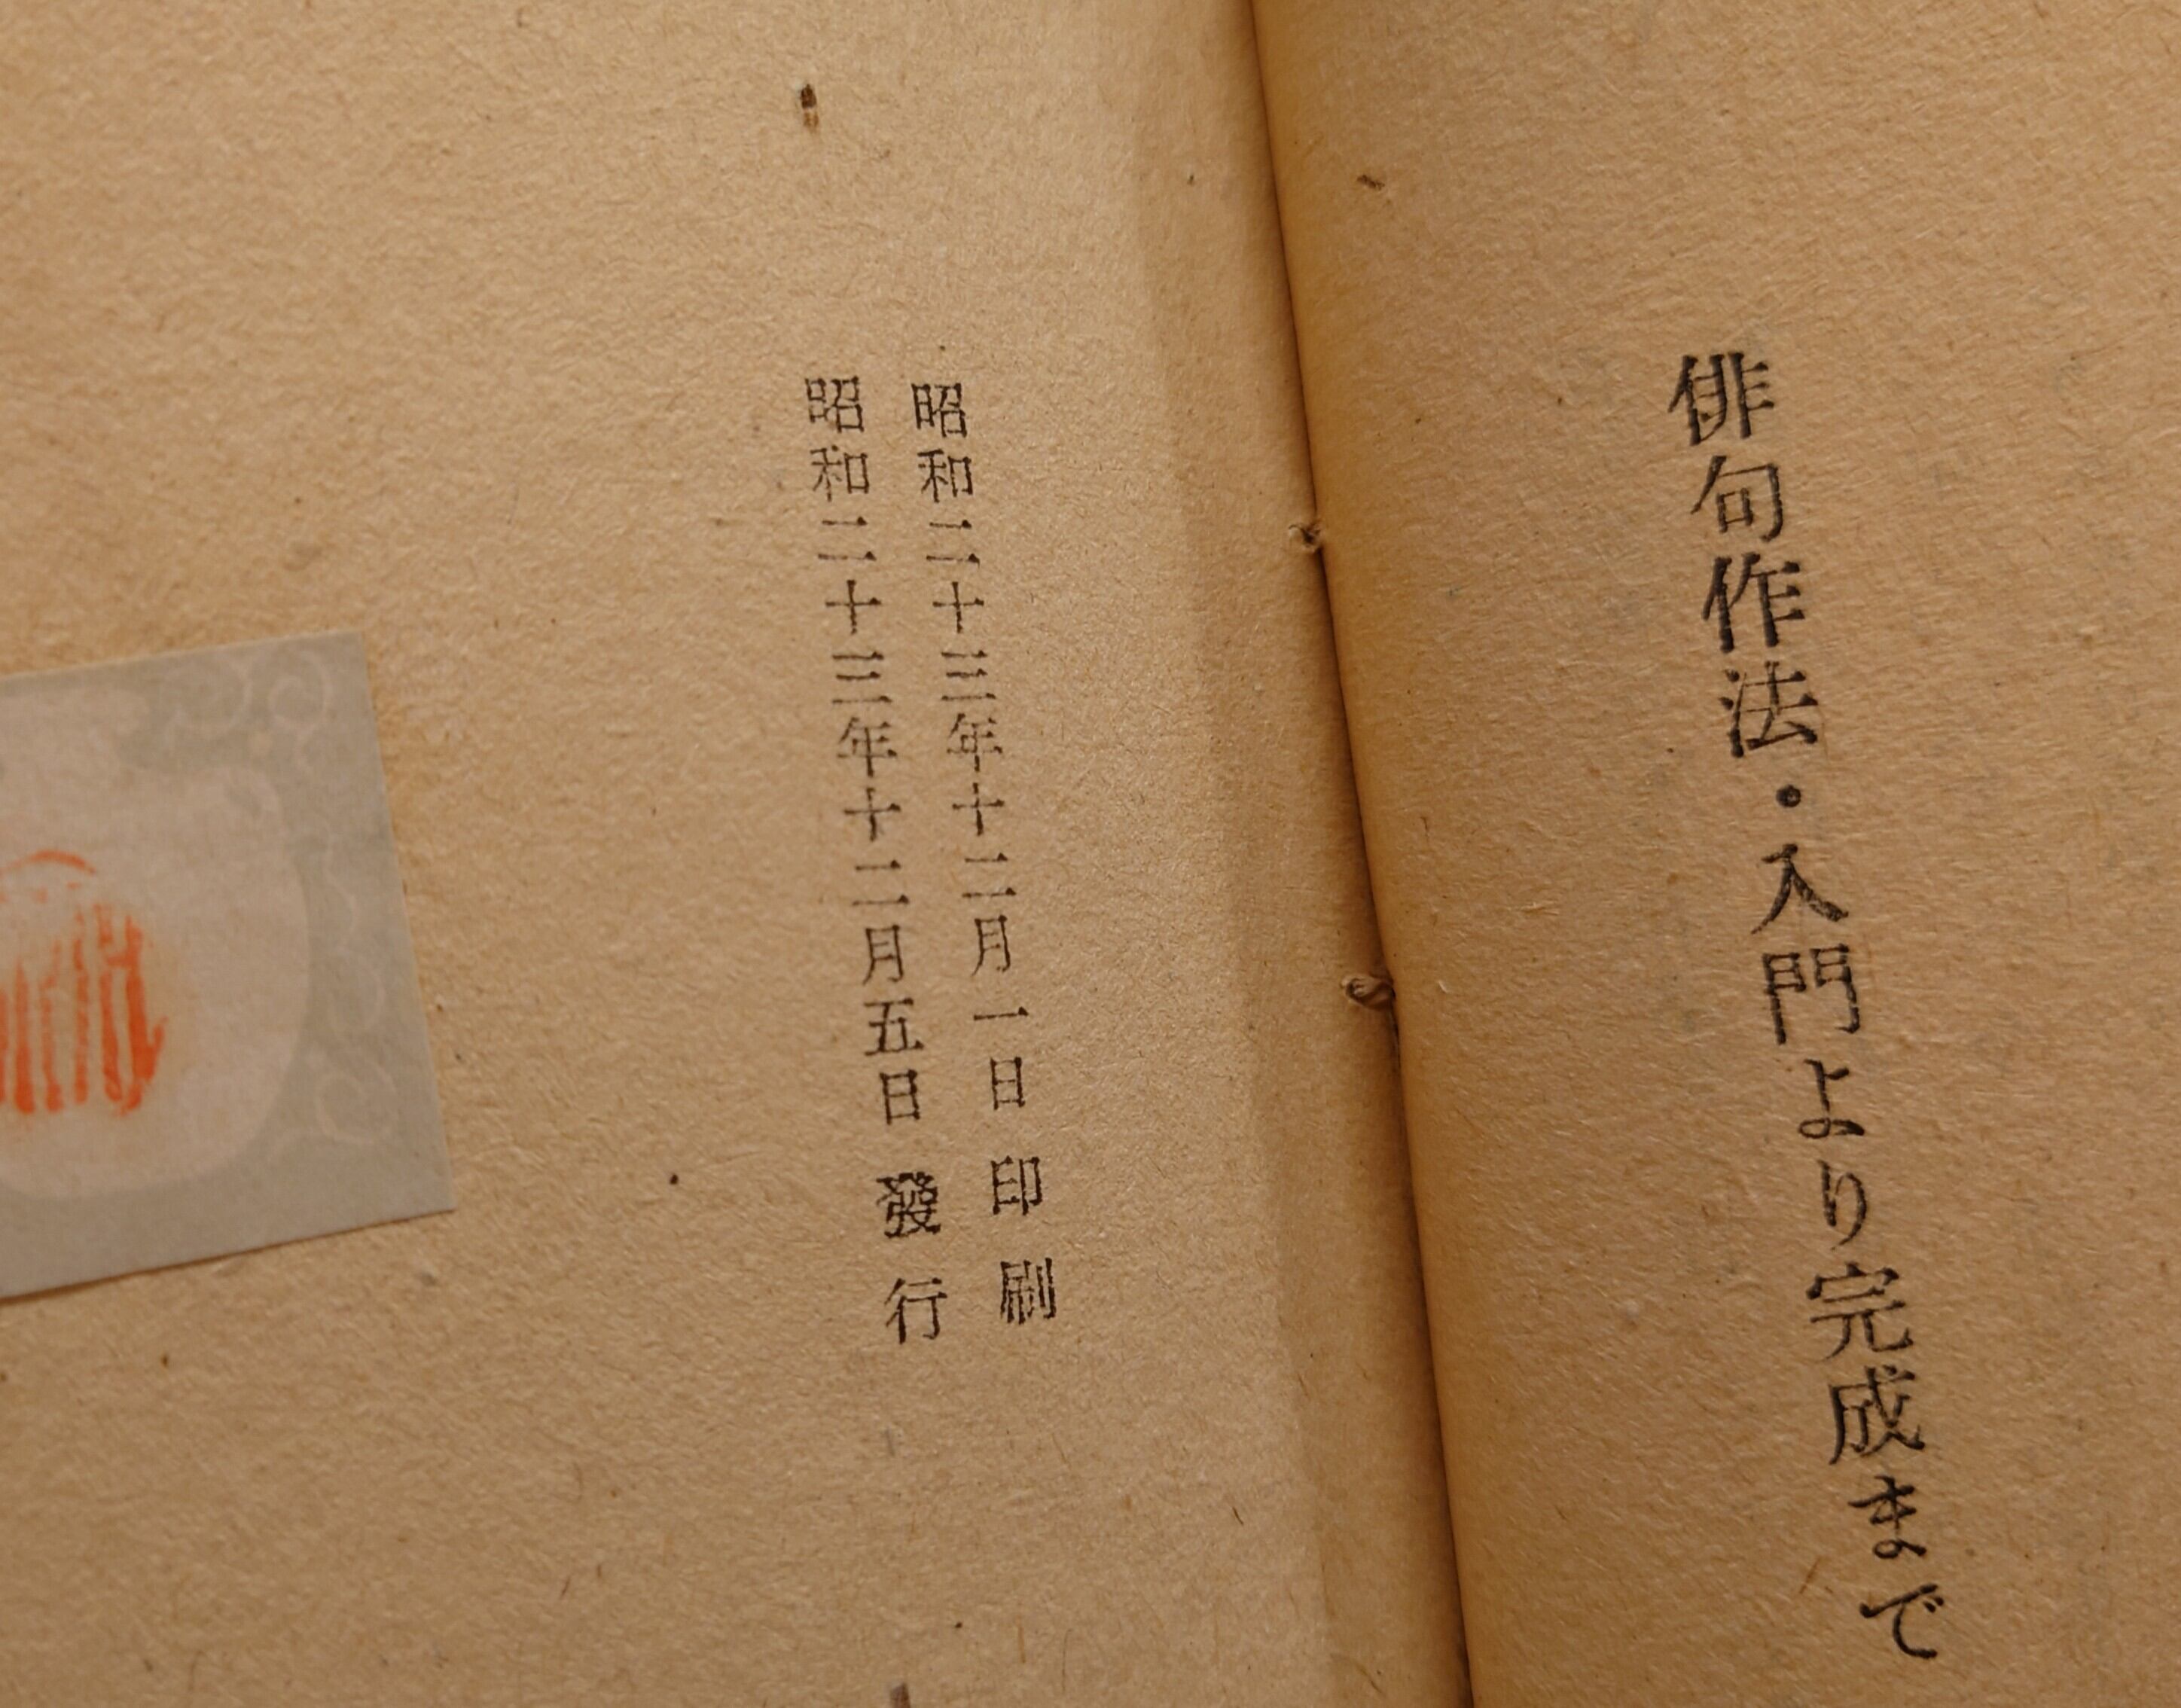 俳句作法・入門より完成まで
昭和二十三年十二月一日 印刷
昭和二十三年十二月五日 發行